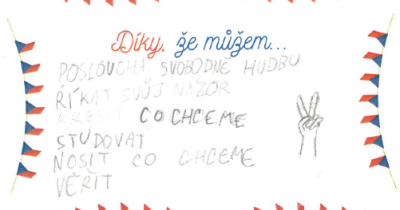 Díky, že můžem...
POSLOUCHA SVOBODNE HUDBU
ŘÍKAT SVŮJ NÁZOR
KRESLIT CO CHCEME
STUDOVAT
NOSIT CO CHCEME
VĚŘIT